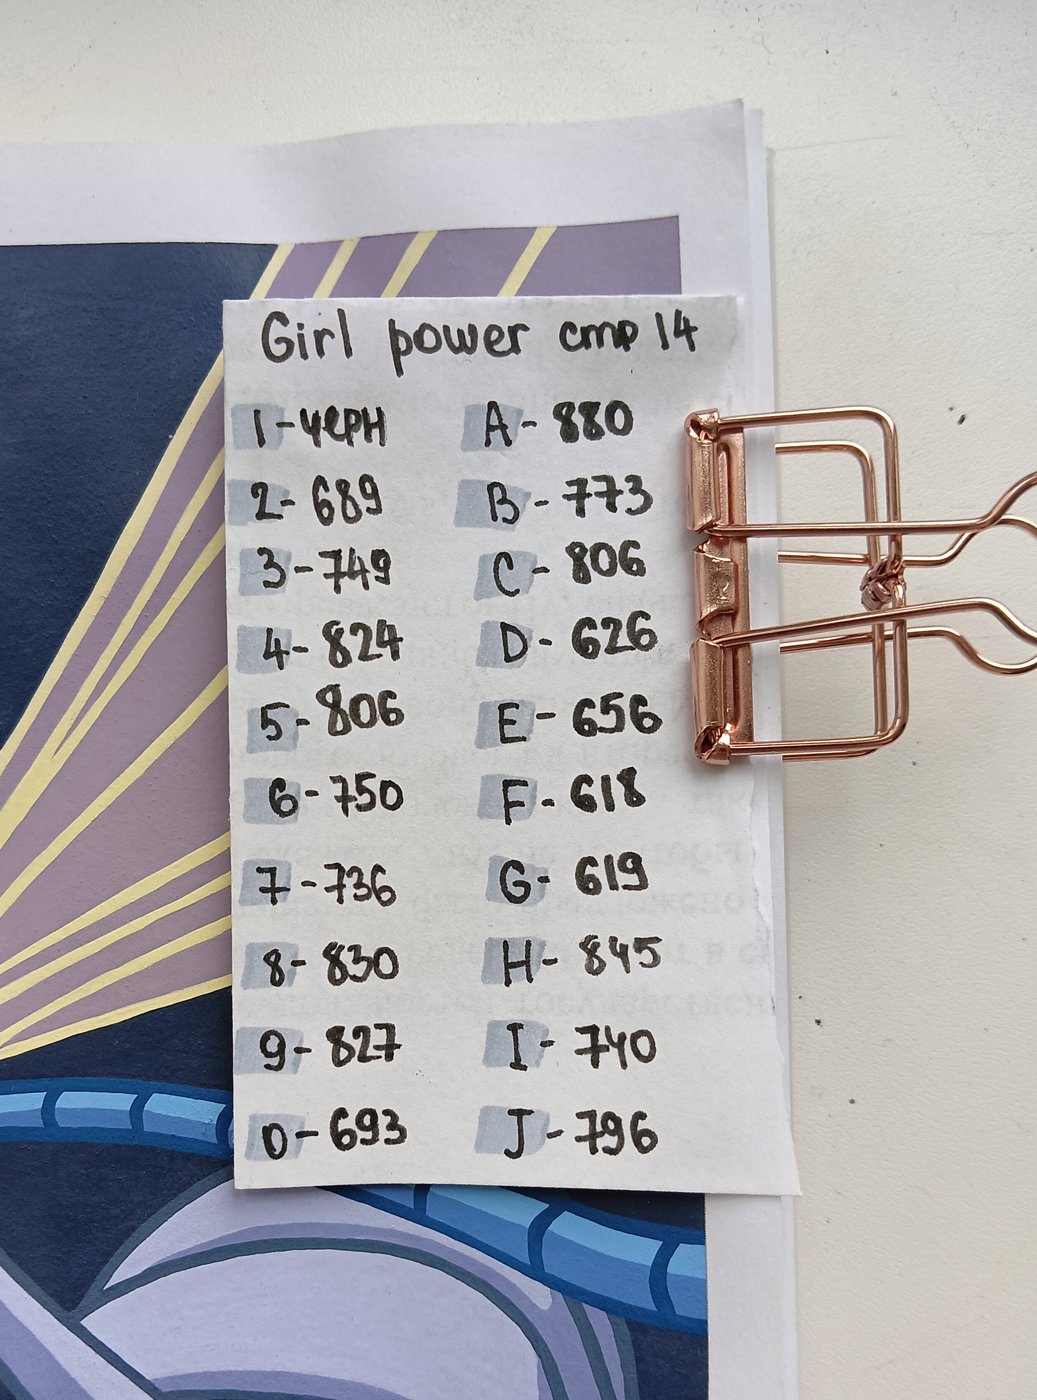 Girl power стр 14
1-черн A-880
2-689 B-773
3-749 C-806
4-824 D-626
5-806 E-656
6-750 F-618
7-736 G-619
8-830 H-845
9-827 I-740
0-693 J-796